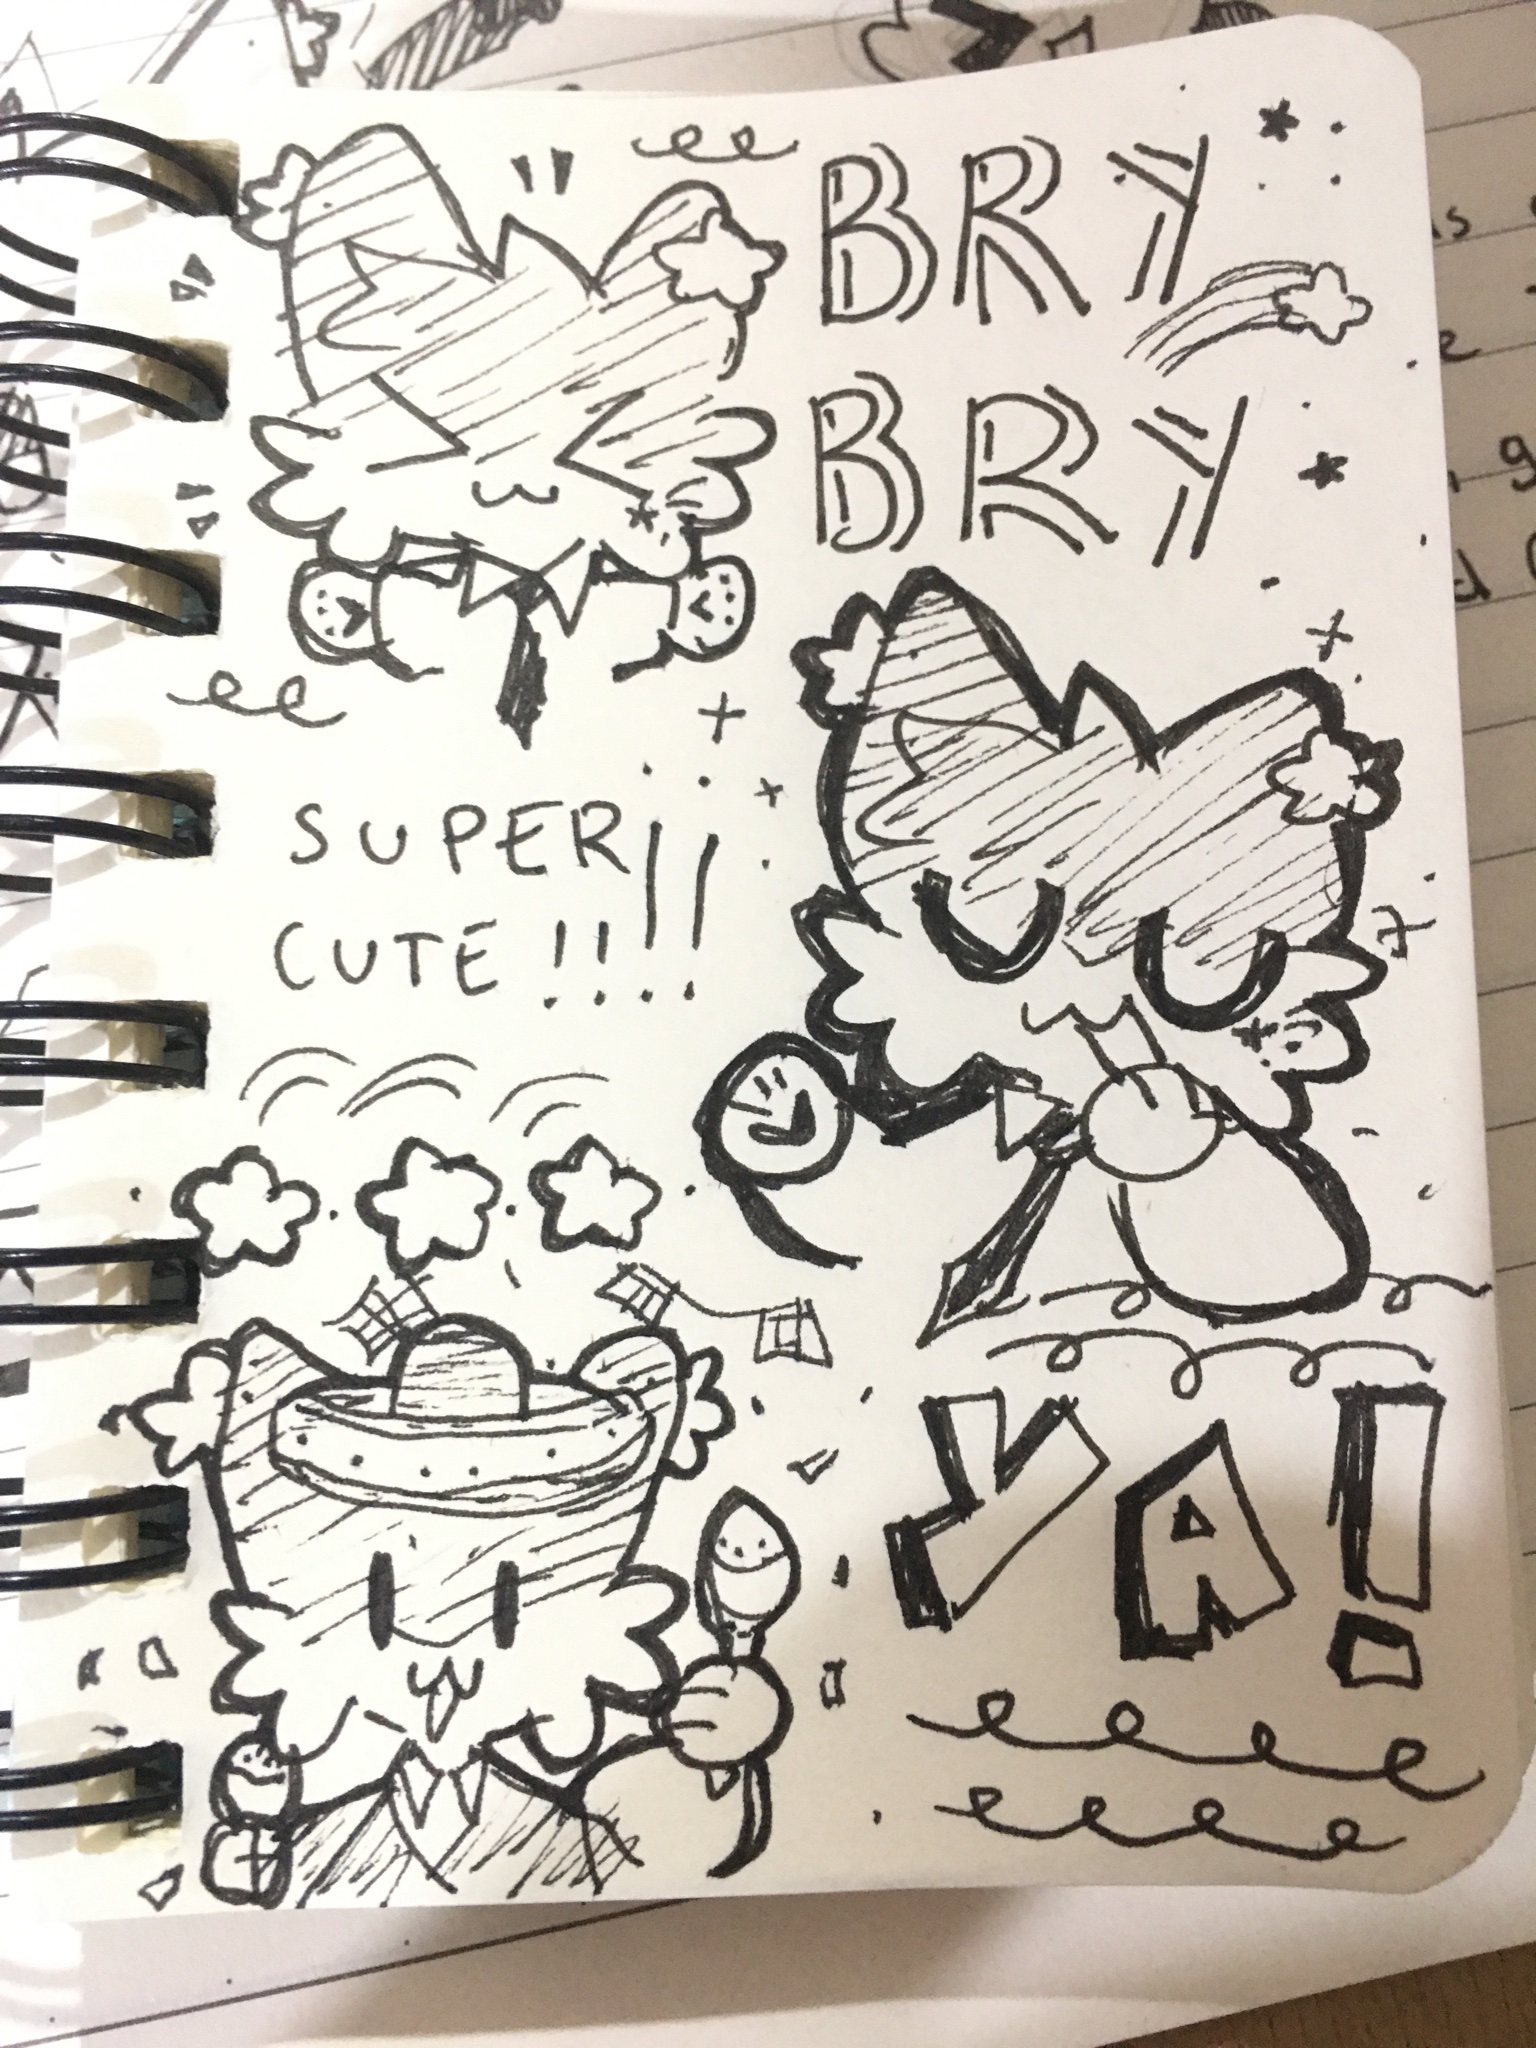 BRY
BRY
SUPER!!
CUTE!!
YA!